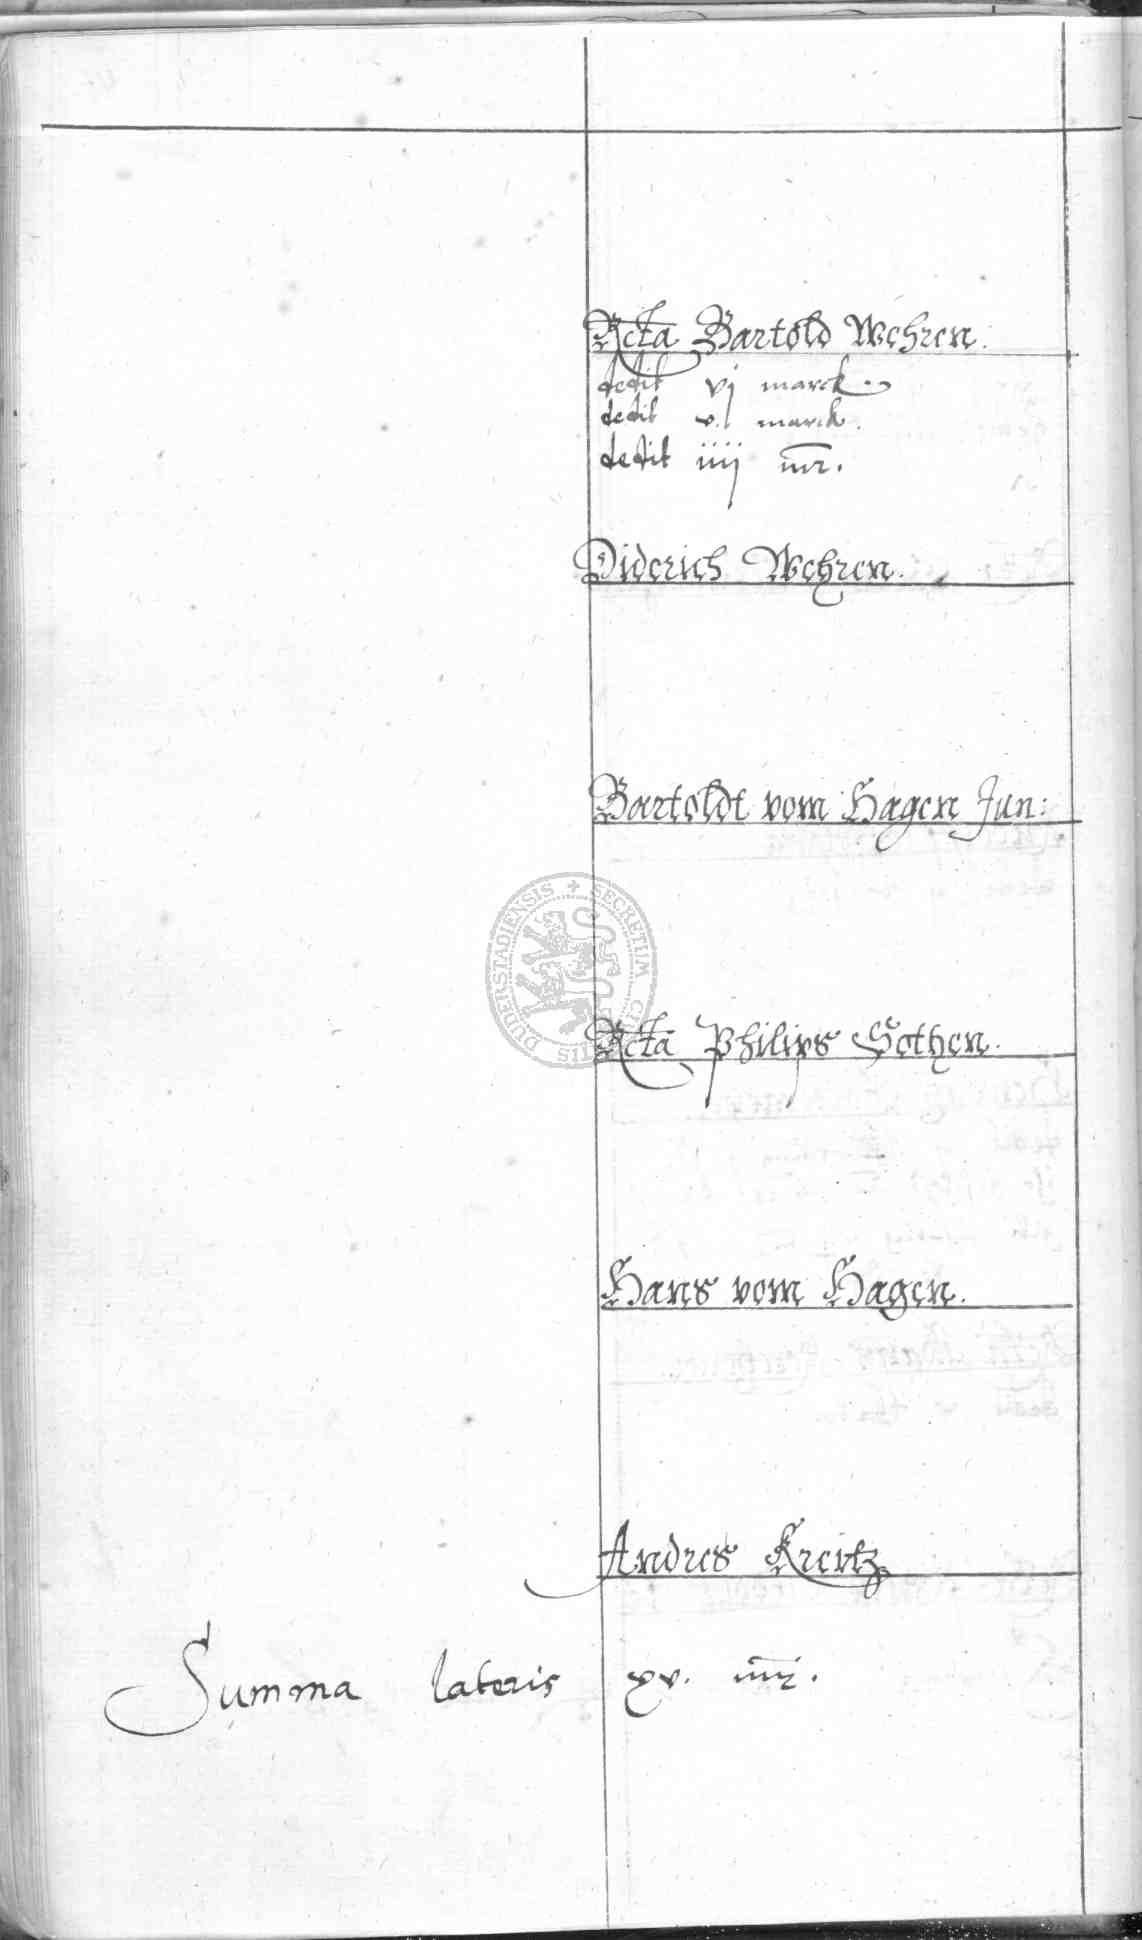 Rcta Bartold Wehren.
dedit vj marck
dedit v. marck.
dedit iiij mr.
Diderich Wehren.
Bartoldt vom Hagen Jun:
SECRETUM CIVITATIS DUDERSTADIENSIS
Rcta Philips Gothen.
Hans vom Hagen.
Andres Kreitz
Summa lateris xv. mr.